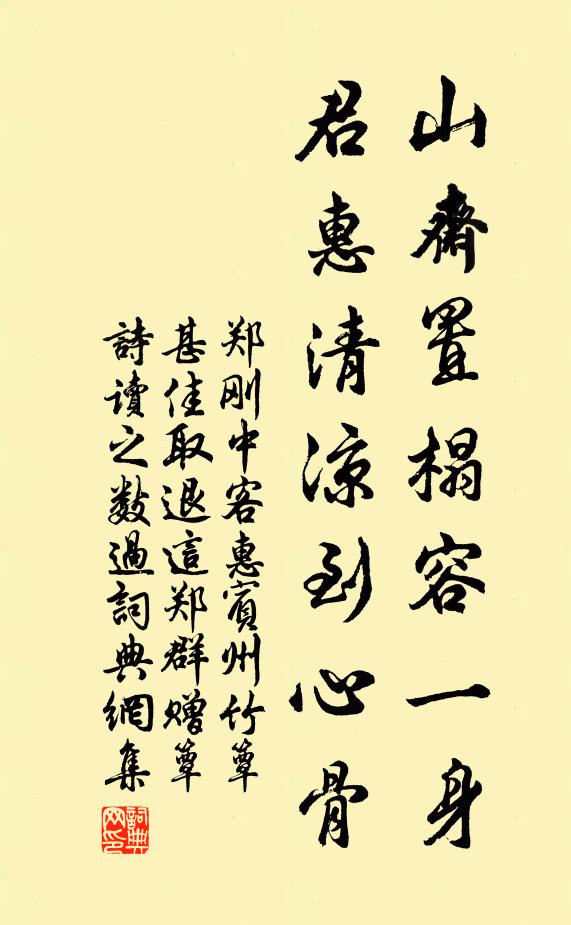 山齋置榻容一身
君惠清凉到心骨
郑刚中客惠賓州竹簟
甚佳取退這郑群赠簟
詩讀之数過詞典網集
詞典网印